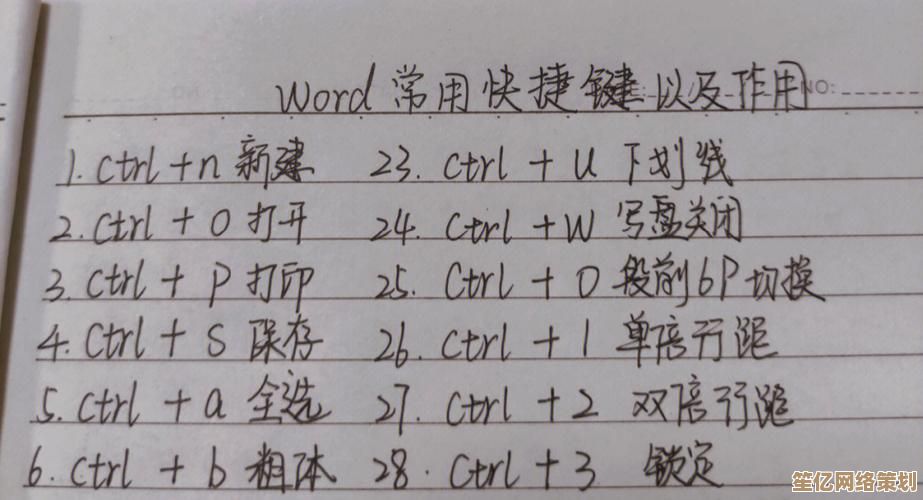 Word 常用快捷键以及作用
NO:
1. Ctrl + n 新建 23. Ctrl + U 下划线
2. Ctrl + O 打开 24. Ctrl + W 写盘关闭
3. Ctrl + P 打印 25. Ctrl + 0 段前6P切换
4. Ctrl + S 保存 26. Ctrl + 1 单倍行距
5. Ctrl + a 全选 27. Ctrl + 2 双倍行距
6. Ctrl + b 粗体 28. Ctrl + 3 锁定
笙亿网络策划